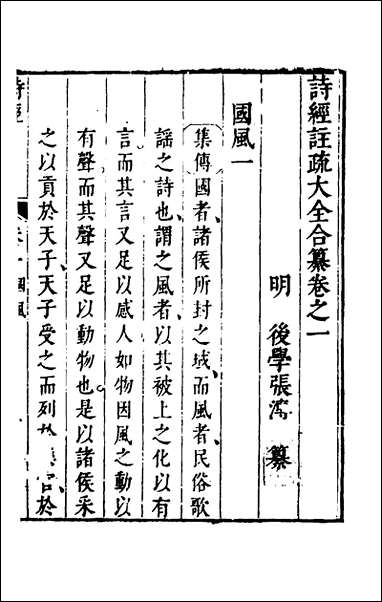 詩經註疏大全合纂卷之一
明 後學張溥 纂
國風一
集傳國者諸侯所封之域而風者民俗歌
謠之詩也謂之風者以其被上之化以有
言而其言又足以感人如物因風之動以
有聲而其聲又足以動物也是以諸侯采
之以貢於天子天子受之而列於 官於
詩經
國風